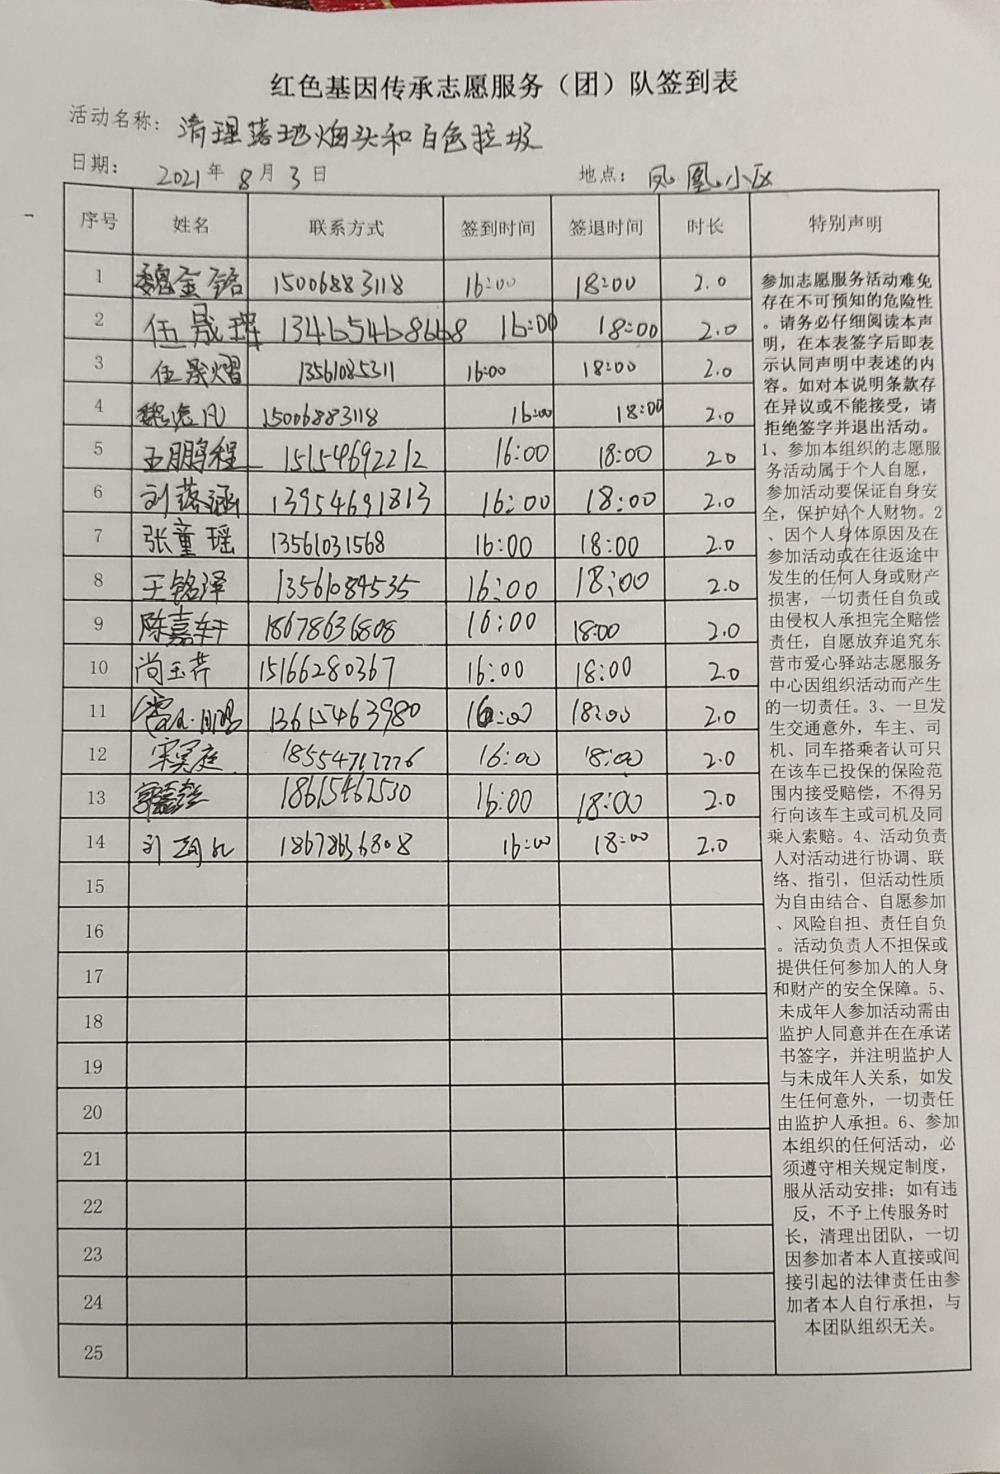 红色基因传承志愿服务（团）队签到表
活动名称：清理落地烟头和白色垃圾
日期： 2021年 8月 3日 地点：凤凰小区
序号 姓名 联系方式 签到时间 签退时间 时长 特别声明
1 魏金铭 15006883118 16:00 18:00 2.0
2 伍晟璍 13465468668 16:00 18:00 2.0
3 伍晟熠 13561085311 16:00 18:00 2.0
4 15006883118 16:00 18:00 2.0
5 王鹏程 15154692212 16:00 18:00 2.0
6 刘落涵 13954691813 16:00 18:00 2.0
7 张童瑶 13561031568 16:00 18:00 2.0
8 王铭泽 13561084535 16:00 18:00 2.0
9 陈嘉轩 18678636808 16:00 18:00 2.0
10 尚玉芹 15166280367 16:00 18:00 2.0
11 13615463980 16:00 18:00 2.0
12 16:00 18:00 2.0
13 18615467530 16:00 18:00 2.0
14 18678636808 16:00 18:00 2.0
15
16
17
18
19
20
21
22
23
24
25
参加志愿服务活动难免
存在不可预知的危险性
。请务必仔细阅读本声
明，在本表签字后即表
示认同声明中表述的内
容。如对本说明条款存
在异议或不能接受，请
拒绝签字并退出活动。
1、参加本组织的志愿服
务活动属于个人自愿，
参加活动要保证自身安
全，保护好个人财物。2
、因个人身体原因及在
参加活动或在往返途中
发生的任何人身或财产
损害，一切责任自负或
由侵权人承担完全赔偿
责任，自愿放弃追究东
营市爱心驿站志愿服务
中心因组织活动而产生
的一切责任。3、一旦发
生交通意外，车主、司
机、同车搭乘者认可只
在该车已投保的保险范
围内接受赔偿，不得另
行向该车主或司机及同
乘人索赔。4、活动负责
人对活动进行协调、联
络、指引，但活动性质
为自由结合、自愿参加
、风险自担、责任自负
。活动负责人不担保或
提供任何参加人的人身
和财产的安全保障。5、
未成年人参加活动需由
监护人同意并在在承诺
书签字，并注明监护人
与未成年人关系，如发
生任何意外，一切责任
由监护人承担。6、参加
本组织的任何活动，必
须遵守相关规定制度，
服从活动安排；如有违
反，不予上传服务时
长，清理出团队，一切
因参加者本人直接或间
接引起的法律责任由参
加者本人自行承担，与
本团队组织无关。